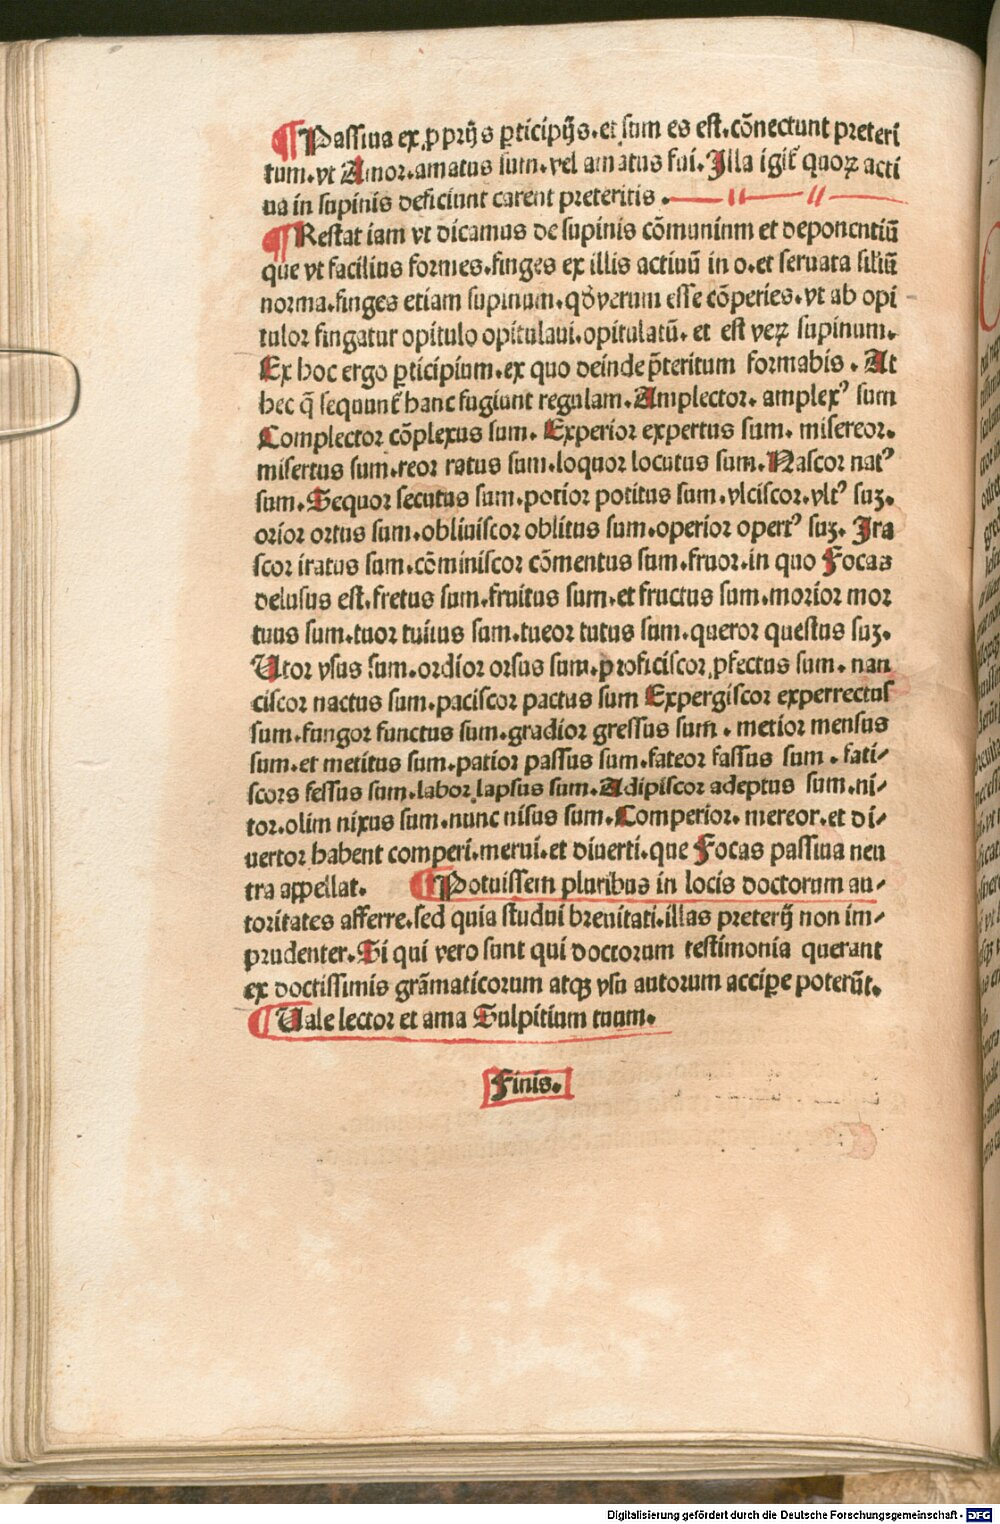 ¶ Passiua ex ꝓprijs ꝑticipijs. et sum es est. cõnectunt preteri
tum. vt Amor. amatus sum. vel amatus fui. Illa igit᷑ quoꝝ acti
ua in supinis deficiunt carent preteritis.
¶ Restat iam vt dicamus de supinis cõmunium et deponentiũ
que vt facilius formes. finges ex illis actiuũ in o. et seruata silĩũ
norma. finges etiam supinum. qď verum esse cõperies. vt ab opi
tulor fingatur opitulo opitulaui. opitulatũ. et est veꝝ supinum.
Ex hoc ergo ꝑticipium. ex quo deinde p̃teritum formabis. At
hec q̃ sequunt᷑ hanc fugiunt regulam. Amplector. amplexꝰ sum
Complector cõplexus sum. Experior expertus sum. misereor.
misertus sum. reor ratus sum. loquor locutus sum. Nascor natꝰ
sum. Sequor secutus sum. potior potitus sum. vlciscor. vltꝰ suꝫ.
orior ortus sum. obliuiscor oblitus sum. operior opertꝰ suꝫ. Ira
scor iratus sum. cõminiscor cõmentus sum. fruor. in quo Focas
delusus est. fretus sum. fruitus sum. et fructus sum. morior mor
tuus sum. tuor tuitus sum. tueor tutus sum. queror questus suꝫ.
Utor vsus sum. ordior orsus sum. proficiscor ꝓfectus sum. nan
ciscor nactus sum. paciscor pactus sum Expergiscor experrectus
sum. fungor functus sum. gradior gressus sum. metior mensus
sum. et metitus sum. patior passus sum. fateor fassus sum. fati/
scors fessus sum. labor lapsus sum. Adipiscor adeptus sum. ni/
tor. olim nixus sum. nunc nisus sum. Comperior. mereor. et di/
uertor habent comperi. merui. et diuerti. que Focas passiua neu
tra appellat. ¶ Potuissem pluribus in locis doctorum au/
toritates afferre. sed quia studui breuitati. illas preterij non im/
prudenter. Si qui vero sunt qui doctorum testimonia querant
ex doctissimis grãmaticorum atqꝫ vsu autorum accipe poterũt.
¶ Uale lector et ama Sulpitium tuum.
Finis.
Digitalisierung gefördert durch die Deutsche Forschungsgemeinschaft - DFG